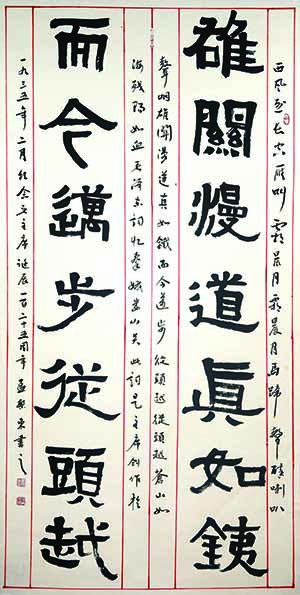 西风烈长空雁叫霜晨月霜晨月马蹄聲碎喇叭
雄關漫道眞如銕
聲咽雄關漫道真如鐵而今邁步從頭越從頭越蒼山如
海残陽如血毛泽东词忆秦娥娄山关此词是主席创作於
而今邁步從頭越
一九三五年二月纪念毛主席诞辰一百二十五周年